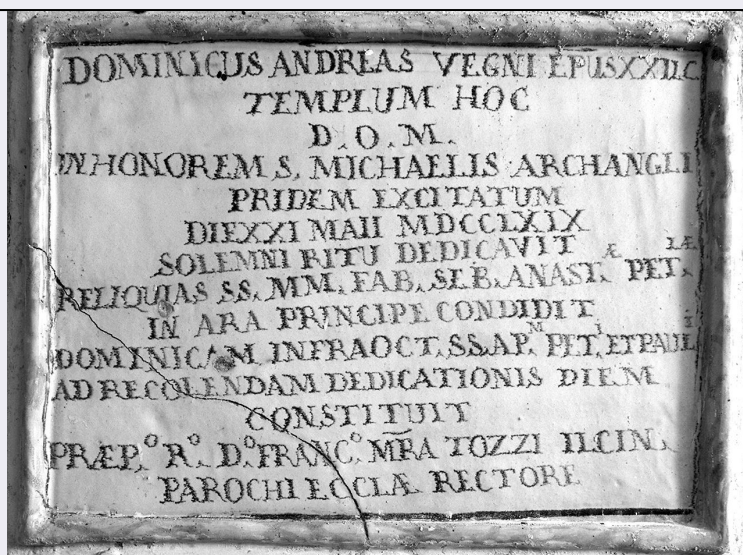 DOMINICUS ANDREAS VEGNI EPUS XXII.C
TEMPLUM HOC
D. O. M.
IN HONOREM S. MICHAELIS ARCHANGLI
PRIDEM EXCITATUM
DIE XXI MAII MDCCLXIX
SOLEMNI RITU DEDICAVIT
RELIQUIAS SS. MM. FAB. SEB. ANAST.Æ PET.LÆ
IN ARA PRINCIPE CONDIDIT
DOMINICAM INFRAOCT. SS. AP.M PET.I ET PAULI
AD RECOLENDAM DEDICATIONIS DIEM
CONSTITUIT
PRÆP.O R.O D.O FRANC.O MRA TOZZI ILCIN.
PAROCHI ECCLÆ RECTORE